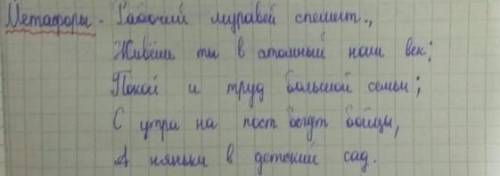 Метафоры - Рабочий муравей спешит.,
Живёшь ты в атомный наш век;
Покой и труд большой семьи;
С утра на пост бегут бойцы,
А няньки в детский сад.